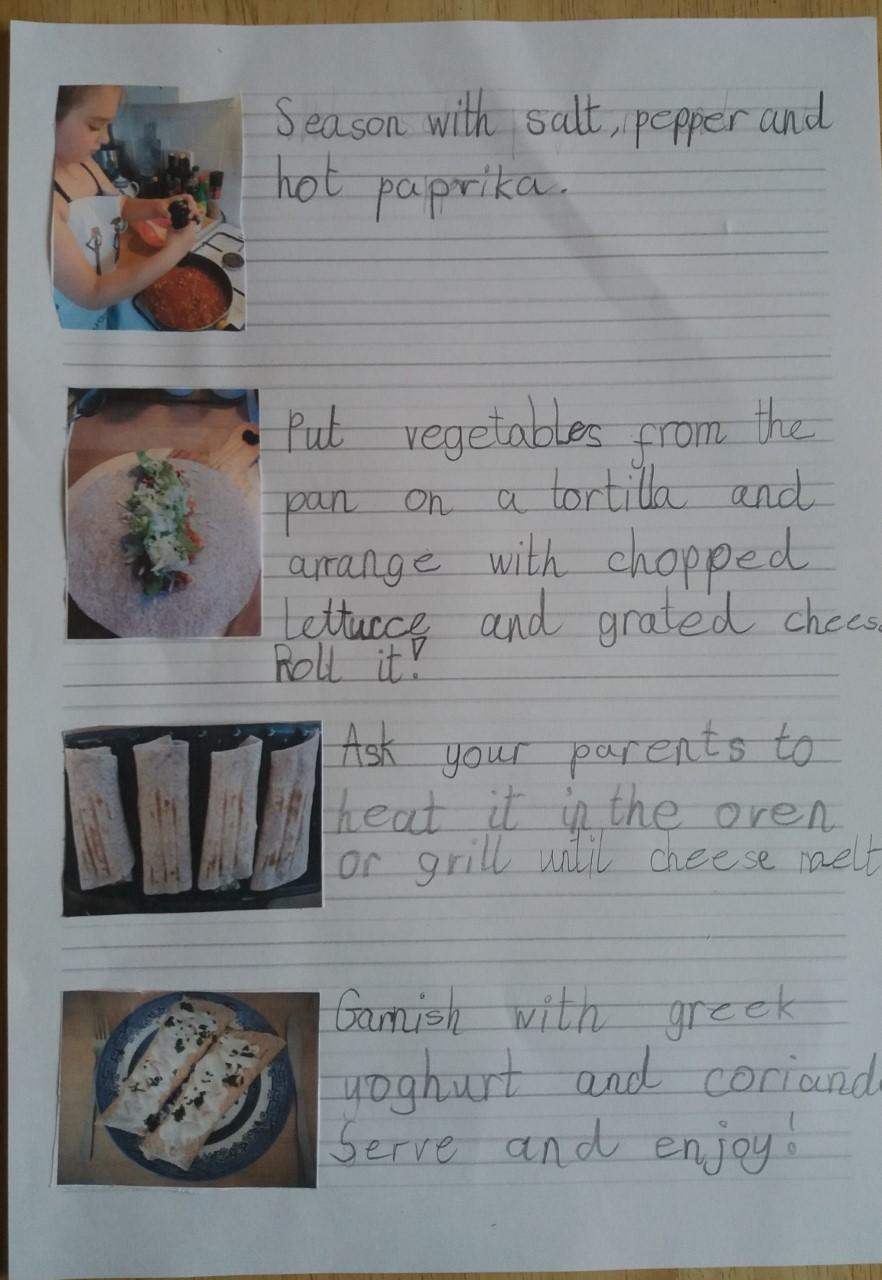 Season with salt, pepper and
hot paprika.
Put vegetables from the
pan on a tortilla and
arrange with chopped
Lettucce and grated chees
Roll it!
Ask your parents to
heat it in the oven
or grill until cheese melt
Garnish with greek
yoghurt and coriand
Serve and enjoy!